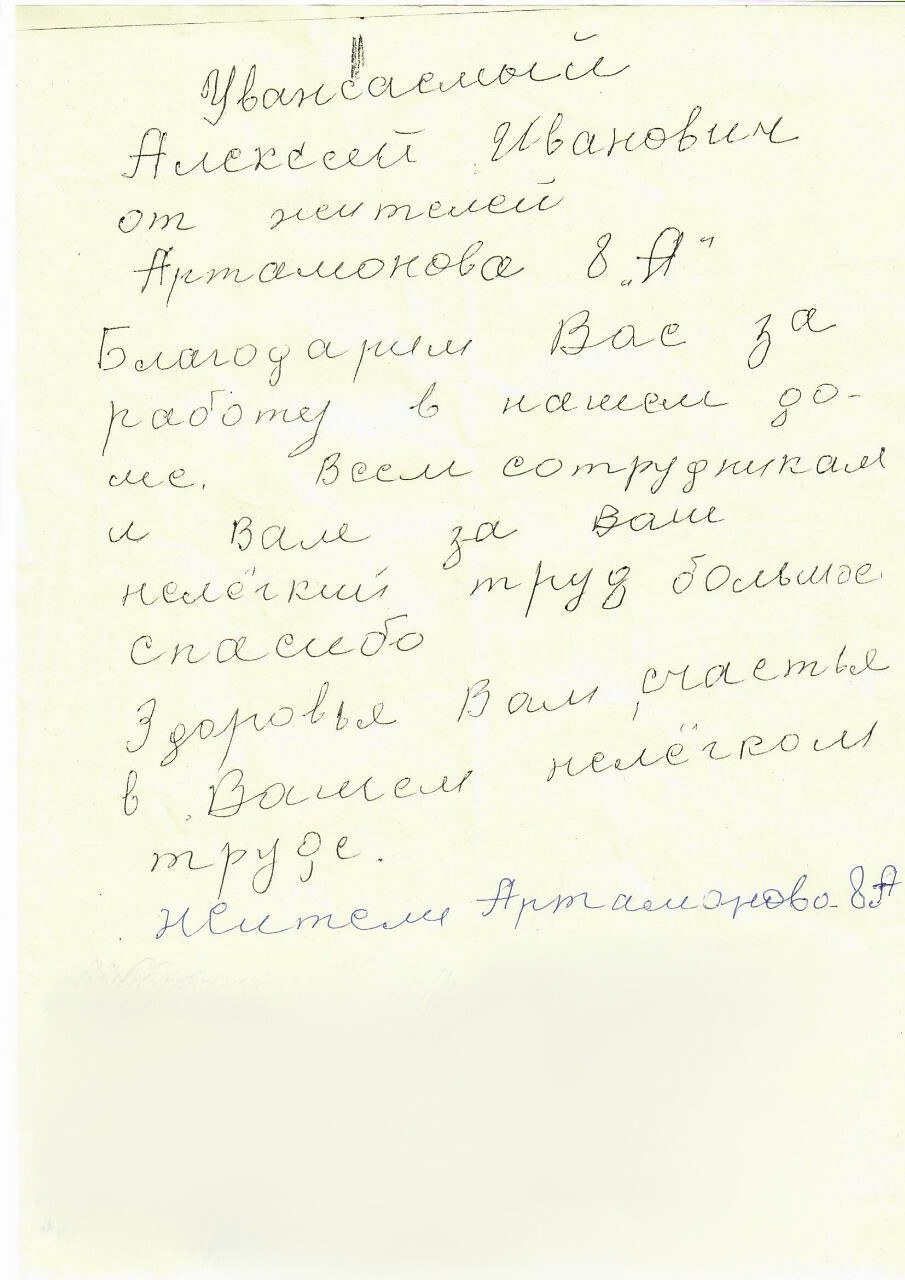 Уважаемый
Алексей Иванович
от жителей
Артамонова 8 „А"
Благодарим Вас за
работу в нашем до-
ме. Всем сотрудникам
и Вам за Ваш
нелёгкий труд большое
спасибо
Здоровья Вам, счастья
в Вашем нелёгком
труде.
жители Артамонова 8А